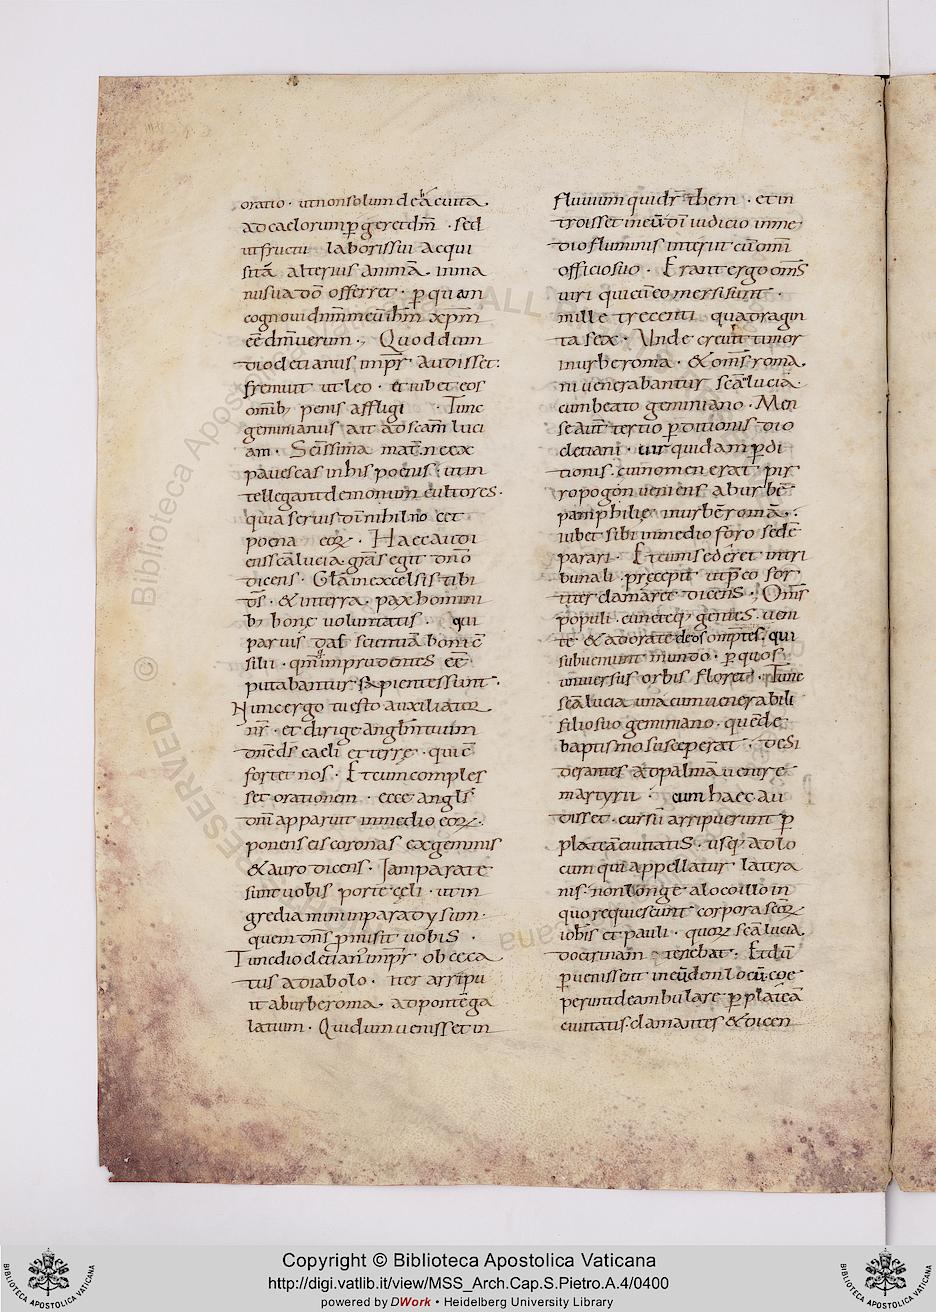 oratio · ut non solum de hac uita
ad caelorum pergeret dm̄ · sed
ut fructū laboris sui acqui
sitā alterius animā · in ma
nu sua dō offerret · per quam
cognoui dnm̄ meū ihm̄ xpm̄
eē dm̄ uerum · Quod dum
diocletianus impr̄ audisset ·
fremuit ut leo · et iubet eos
omib; penis affligi · Tunc
geminianus ait ad scam̄ luci
am · Scīssima mat̄ ne ex
pauescas in his poenis · ut in
tellegant demonum cultores ·
quia seruis dī nihil no cet
poena eoꝝ · Haec audi
ens scā lucia · grās egit dnō
dicens · Gla in excelsis tibi
dś · & in terra · pax homini
b; bonę uoluntatis · qui
paruis das scientiā boni cō
silii · qm̄ imprudentes eē
putabantur sapientes sunt ·
Nunc ergo tu esto auxiliator
nr̄ · et dirige anglm̄ tuum
dnē ds caeli et terrę · qui cō
fortet nos · Et cum comples
set orationem · ecce angls̄
dnī apparuit in medio eoꝝ ·
ponens eis coronas ex gemmis
& auro dicens · Iam paratę
sunt uobis portę cęli · ut in
grediamini in paradysum ·
quem dns̄ p̄misit uobis ·
Tunc diocletianꝰ impr̄ obceca
tus a diabolo · iter arripu
it ab urbe roma · ad pontē ga
latum · Qui dum uenisset in
fluuium qui dr̄ them · et in
troisset in eū dī iudicio in me
dio fluminis interiit cū omī
officio suo · Erant ergo oms̄
uiri qui cū eo mersi sunt ·
mille trecenti · quadragin
ta sex · Unde creuit timor
in urbe roma · & oms̄ roma
ni uenerabantur scā lucia ·
cum beato geminiano · Men
se aut̄ tertio perditionis dio
cletiani · uir quidam perdi
tionis · cui nomen erat pir
ropogon ueniens ab urbē
pamphilię in urbē romā ·
iubet sibi in medio foro sedē
parari · Et cum sederet in tri
bunali · pręcepit ut pręco for
titer clamaret dicens · Oms̄
populi · cunctęq; gentes · ueni
te & adorate deos omptēs · qui
subueniunt mundo · per quos
uniuersus orbis floret · Tunc
scā lucia una cum uenerabili
filio suo geminiano · quē de
baptismo susceperat · desi
derantes ad palmā uenire
martyrii · cum haec au
disset · cursū arripuerunt per
plateā ciuitatis · usq; ad lo
cum qui appellatur latera
nis · non longe a locollo in
quo requiescunt corpora scoꝝ
iohis et pauli · quoꝝ scā lucia
doctrinam tenebat · Et dū
peruenissent in eūdem locū · coe
perunt deambulare per plateā
ciuitatis · clamantes & dicen
© Biblioteca Apostolica Vaticana ALL RESERVED
Copyright © Biblioteca Apostolica Vaticana
http://digi.vatlib.it/view/MSS_Arch.Cap.S.Pietro.A.4/0400
powered by DWork • Heidelberg University Library
BIBLIOTECA APOSTOLICA VATICANA
BIBLIOTECA APOSTOLICA VATICANA